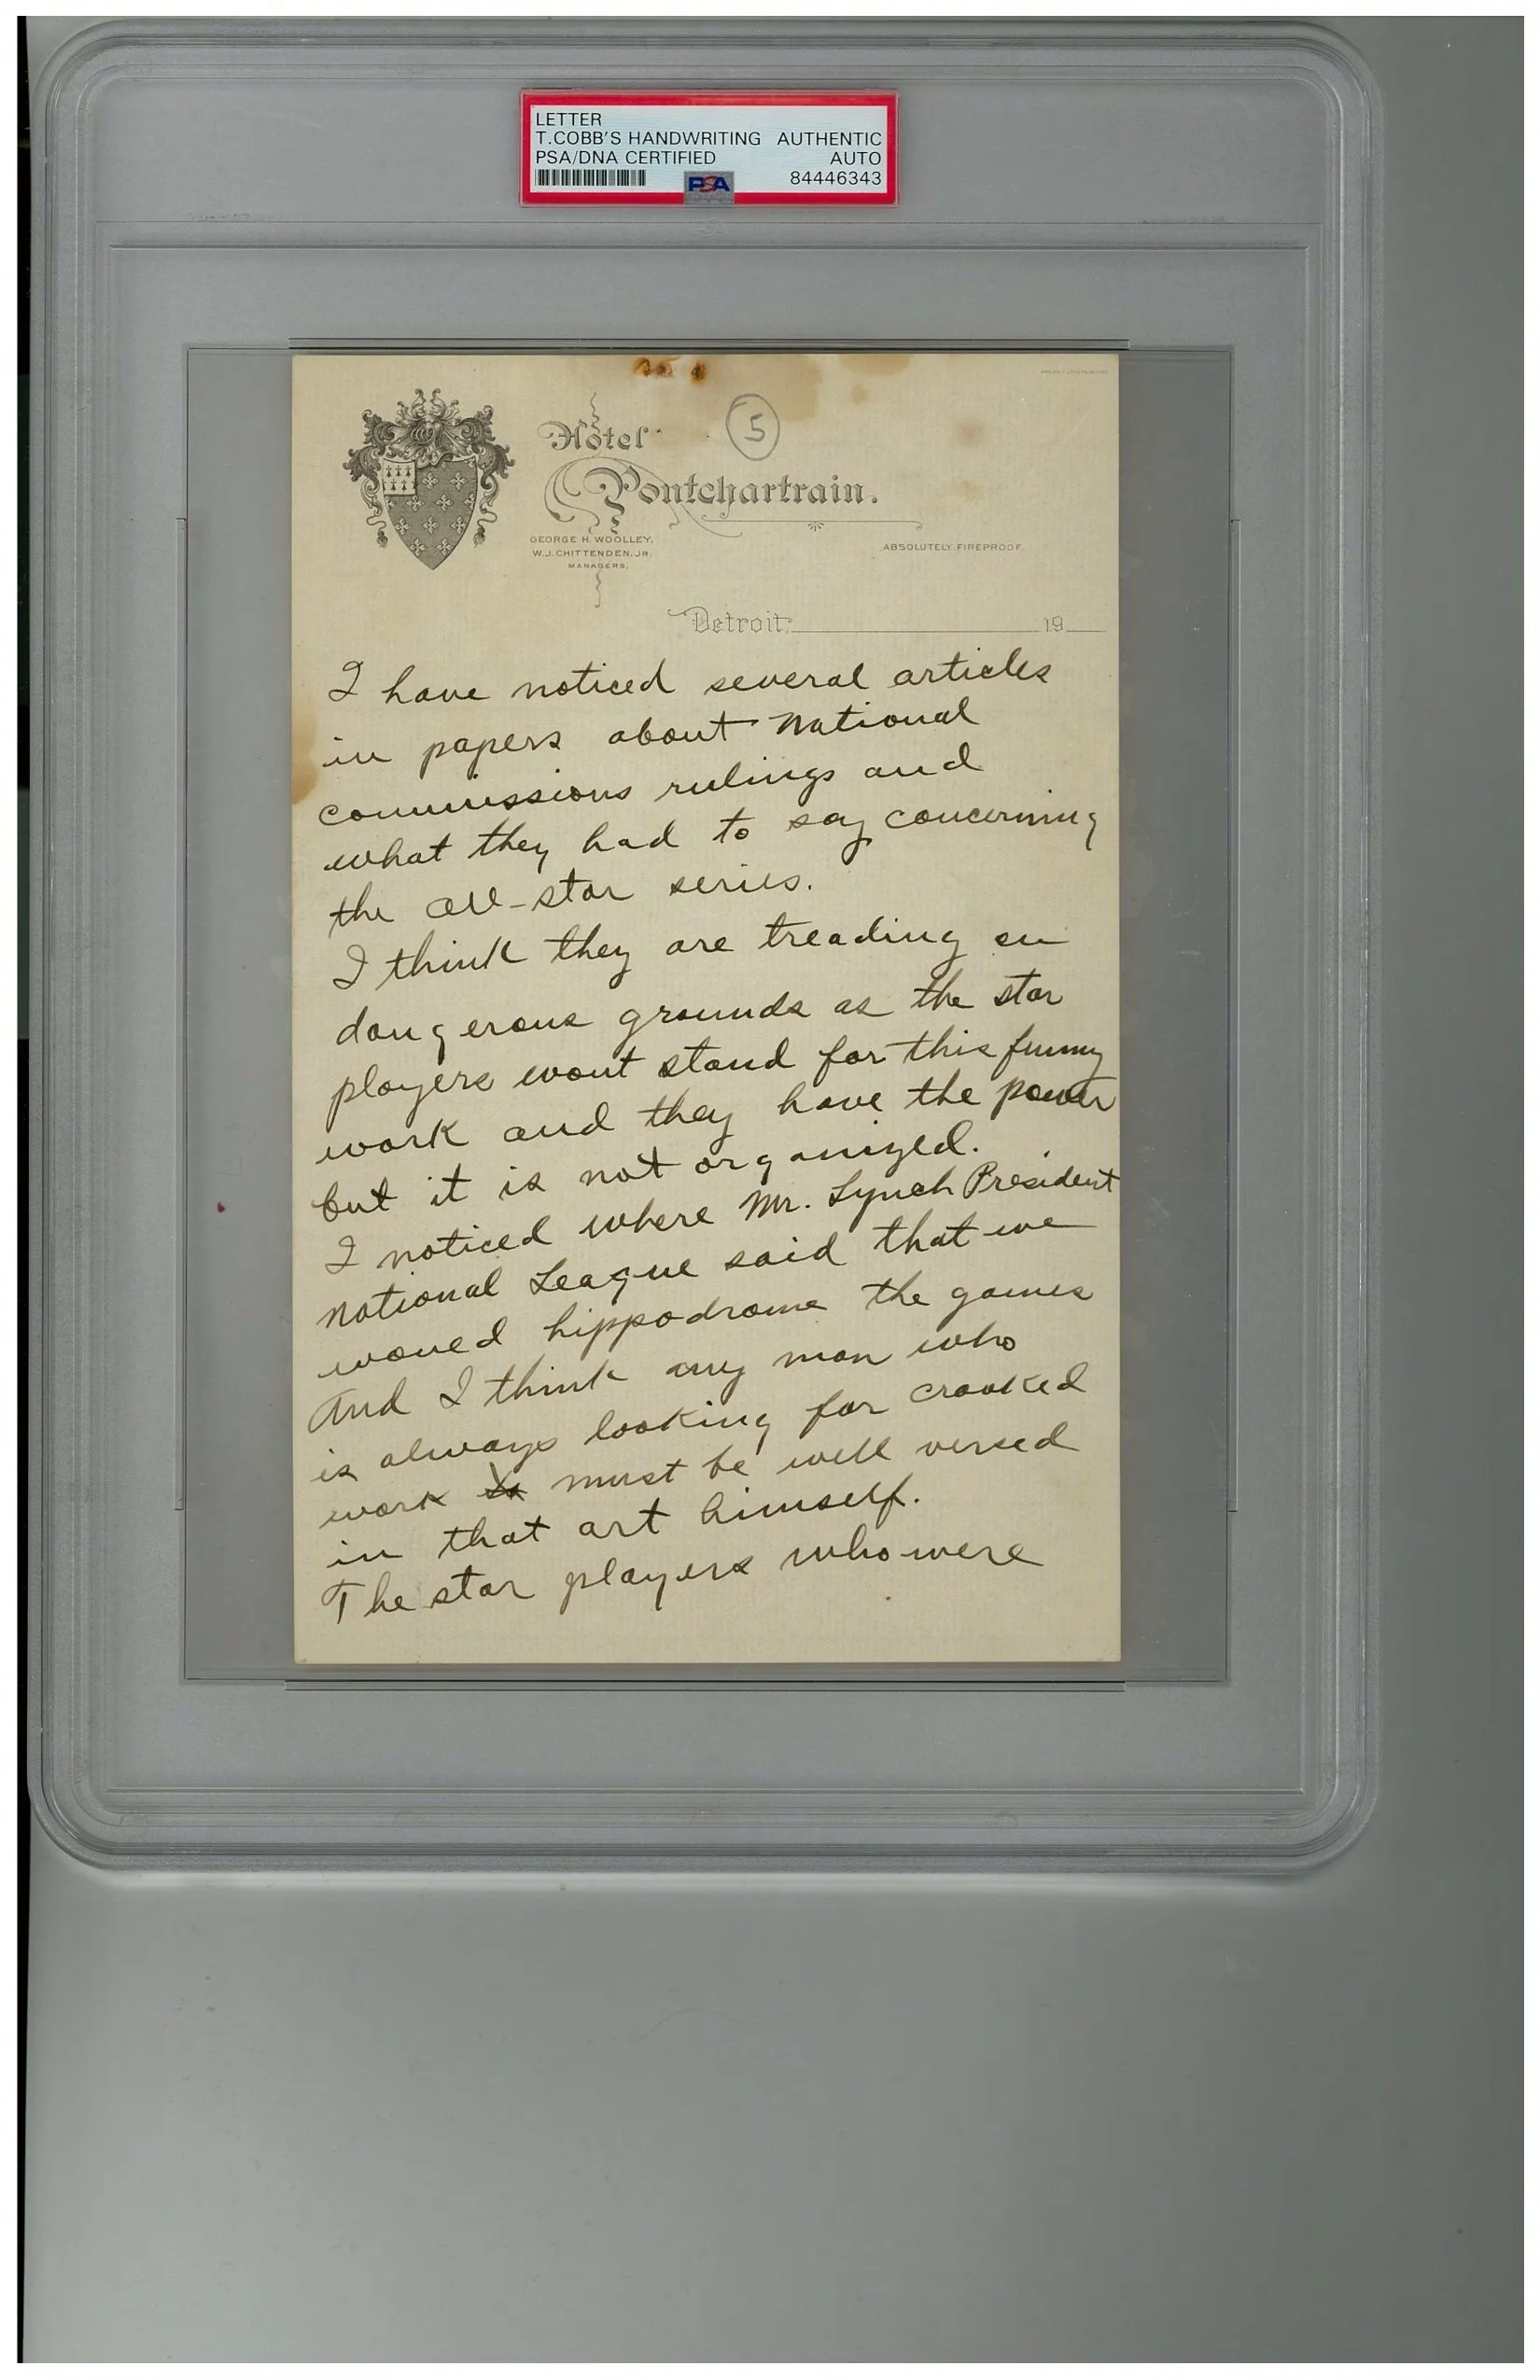 LETTER
T.COBB'S HANDWRITING AUTHENTIC
PSA/DNA CERTIFIED AUTO
PSA 84446343
5
Hotel
Pontchartrain.
GEORGE H. WOOLLEY,
W.J. CHITTENDEN, JR.
MANAGERS.
ABSOLUTELY FIREPROOF.
Detroit, 19
I have noticed several articles
in papers about National
commissions rulings and
what they had to say concerning
the all-star series.
I think they are treading on
dangerous grounds as the star
players wont stand for this funny
work and they have the power
but it is not organized.
I noticed where Mr. Lynch President
National League said that we
woued hippodrome the games
And I think any man who
is always looking for crooked
work must be well versed
in that art himself.
The star players who were